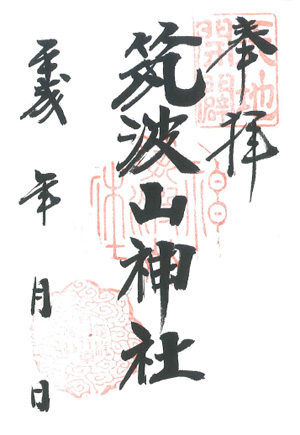 奉拝
天地開闢
筑波山神社
平成 年 月 日